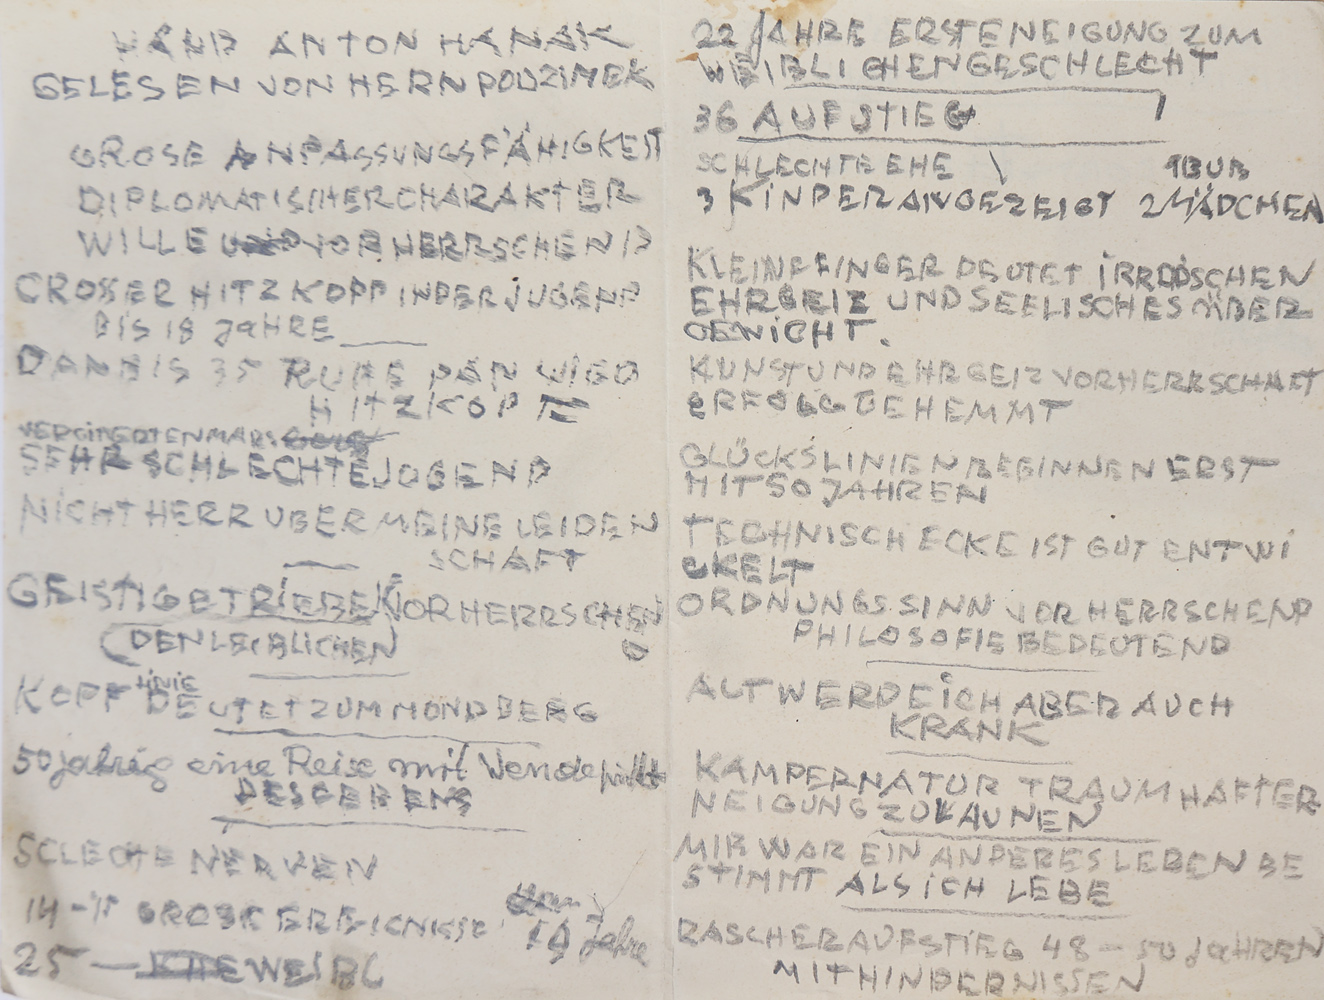 HAND ANTON HANAK
GELESEN VON HERN POUZIMEK
GROSE ANPASSUNGSFÄHIGKEIT
DIPLOMATISCHER CHARAKTER
WILLE VORHERRSCHEND
GROSER HITZKOPF IN DER JUGEND
BIS 18 JAHRE
DANN BIS 35 RUHE DAN WIED
HITZKOPF
SEHR SCHLECHTE JUGEND
NICHT HERR UBER MEINE LEIDEN
SCHAFT
GEISTIGE TRIEBE VORHERRSCHEN
D
(DEN LEIBLICHEN)
KOPF LINIE DEUTET ZUM MONDBERG
50 jahrig eine Reise mit Wendepunkt
DES LEBENS
SCLECHE NERVEN
14 – GROSE EREIGNISSE
19 Jahre
25 — WEIBL
22 JAHRE ERSTE NEIGUNG ZUM
WEIBLICHEN GESCHLECHT
36 AUFSTIEG
SCHLECHTE EHE \ 1 BUB
3 KINDER ANGEZEIGT 2 MÄDCHEN
KLEINFINGER DEUTET IRRDISCHEN
EHRGEIZ UND SEELISCHES ÜBER
GEWICHT.
KUNST UND EHRGEIZ VORHERRSCHAFT
ERFOLG GEHEMMT
GLÜCKSLINIEN BEGINNEN ERST
MIT 50 JAHREN
TECHNISCH ECKE IST GUT ENTWI
CKELT
ORDNUNGSSINN VORHERRSCHEND
PHILOSOFIE BEDEUTEND
ALT WERDE ICH ABER AUCH
KRANK
KAMPFERNATUR TRAUMHAFTER
NEIGUNG ZU LAUNEN
MIR WAR EIN ANDERES LEBEN BE
STIMMT ALS ICH LEBE
RASCHER AUFSTIEG 48 – 50 JAHREN
MIT HINDERNISSEN